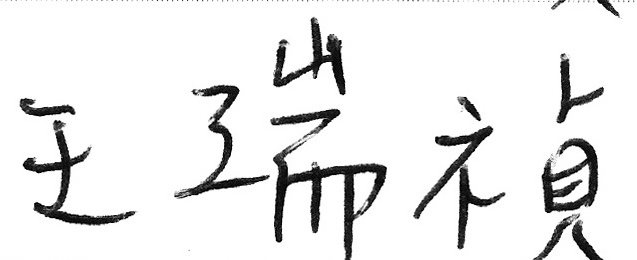 王瑞禎